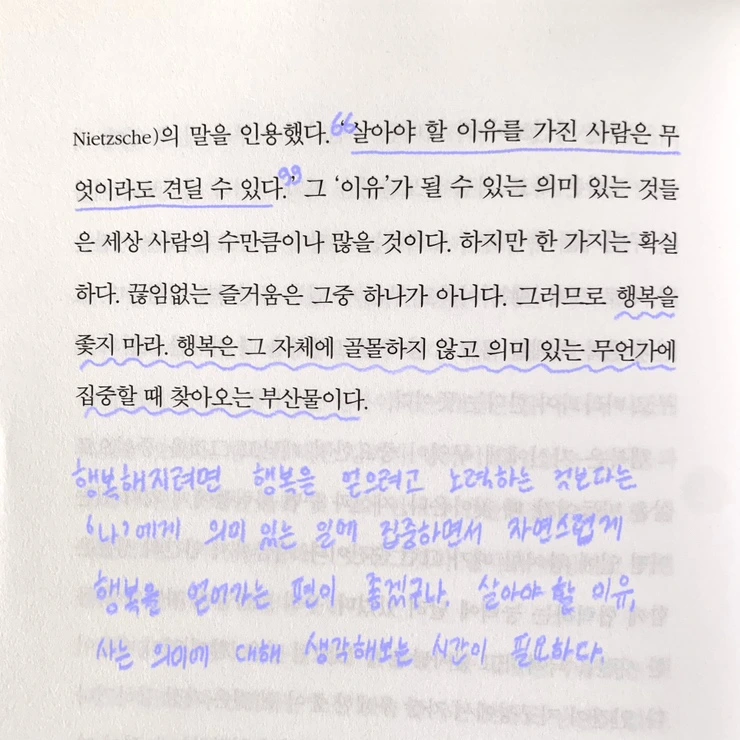 Nietzsche)의 말을 인용했다. “‘살아야 할 이유를 가진 사람은 무
엇이라도 견딜 수 있다.’” 그 ‘이유’가 될 수 있는 의미 있는 것들
은 세상 사람의 수만큼이나 많을 것이다. 하지만 한 가지는 확실
하다. 끊임없는 즐거움은 그중 하나가 아니다. 그러므로 행복을
좇지 마라. 행복은 그 자체에 골몰하지 않고 의미 있는 무언가에
집중할 때 찾아오는 부산물이다.
행복해지려면 행복을 얻으려고 노력하는 것보다는
‘나’에게 의미 있는 일에 집중하면서 자연스럽게
행복을 얻어가는 편이 좋겠구나. 살아야 할 이유,
사는 의미에 대해 생각해보는 시간이 필요하다.